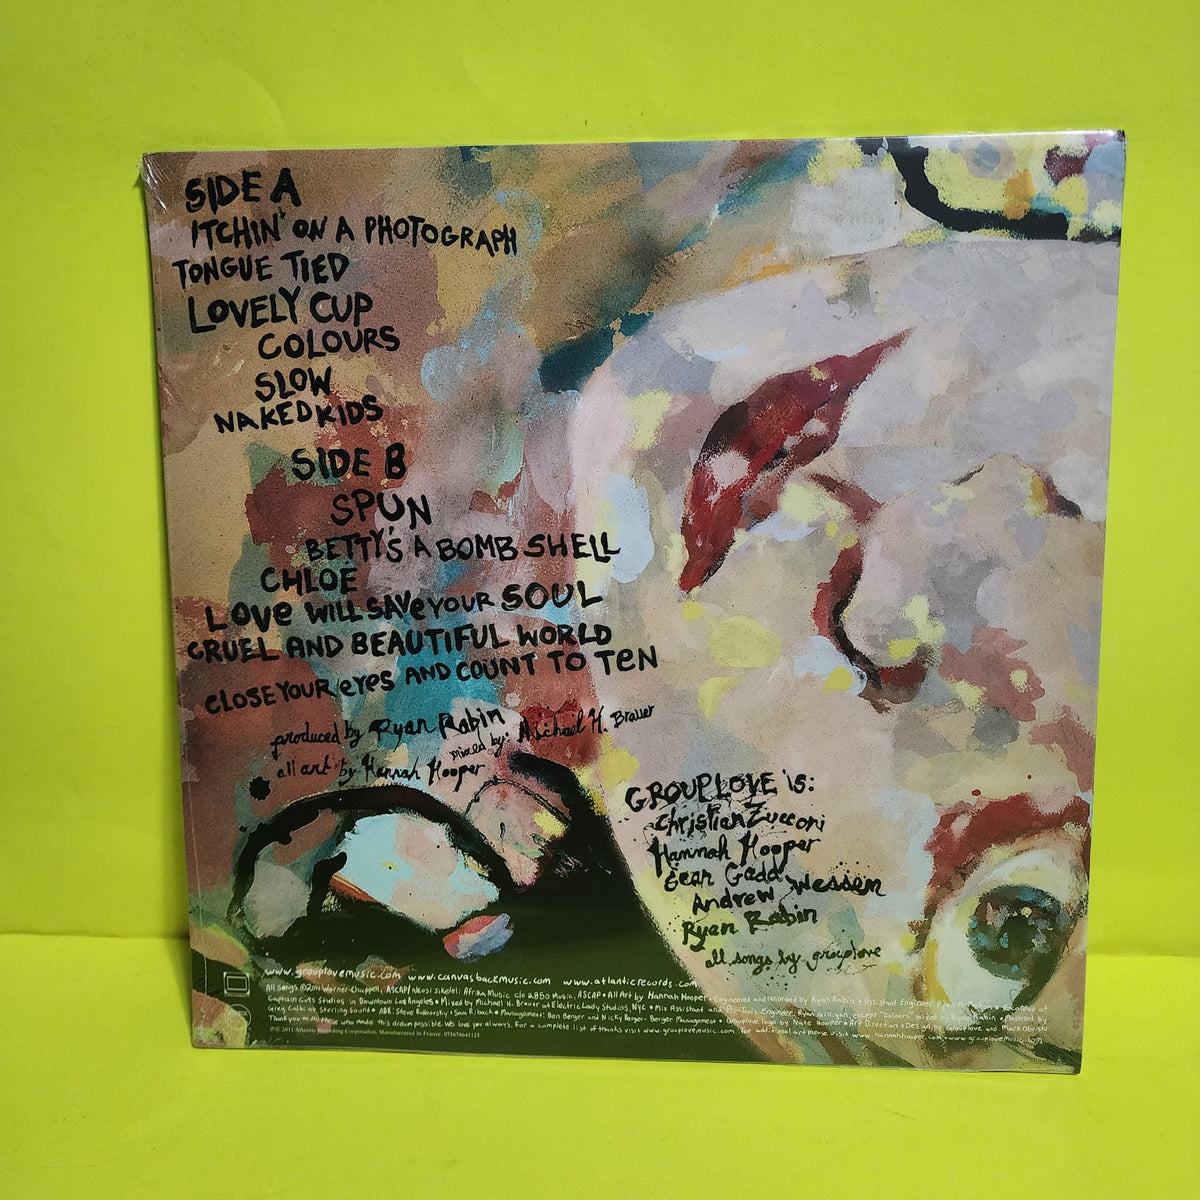 SIDE A
ITCHIN' ON A PHOTOGRAPH
TONGUE TIED
LOVELY CUP
COLOURS
SLOW
NAKED KIDS
SIDE B
SPUN
BETTY'S A BOMB SHELL
CHLOE
LOVE WILL SAVE YOUR SOUL
CRUEL AND BEAUTIFUL WORLD
CLOSE YOUR EYES AND COUNT TO TEN
produced by Ryan Rabin
mixed by: Michael H. Brauer
all art by Hannah Hooper
GROUPLOVE is:
Christian Zucconi
Hannah Hooper
Sean Gadd
Andrew Wessen
Ryan Rabin
all songs by grouplove
www.grouplovemusic.com www.canvasbackmusic.com www.atlanticrecords.com
All songs ©2011 Warner-Chappell, ASCAP/ Nkosi Sikeleli Afrika Music c/o 2850 Music, ASCAP • All Art by Hannah Hooper • Engineered and recorded by Ryan Rabin • Assistant Engineer Ryan • Recorded at
Captain Cuts Studios in Downtown Los Angeles • Mixed by Michael H. Brauer at Electric Lady Studios, NYC • Mix Assistant and Pro-Tools Engineer, Ryan Gilligan, except "Colours" mixed by Ryan Rabin • Mastered by
Greg Calbi at Sterling Sound • A&R: Steve Ralbovsky • Sam Riback • Management: Ben Berger and Nicky Berger - Berger Management • Grouplove logo by Nate Hooper • Art Direction + Design by Grouplove and Mark Obriski
Thank you to all those who made this dream possible. We love you always. For a complete list of thanks visit www.grouplovemusic.com, for additional art please visit www.hannahhooper.com • www.grouplovemusic.com
℗ © 2011 Atlantic Recording Corporation. Manufactured in France. 075678641125